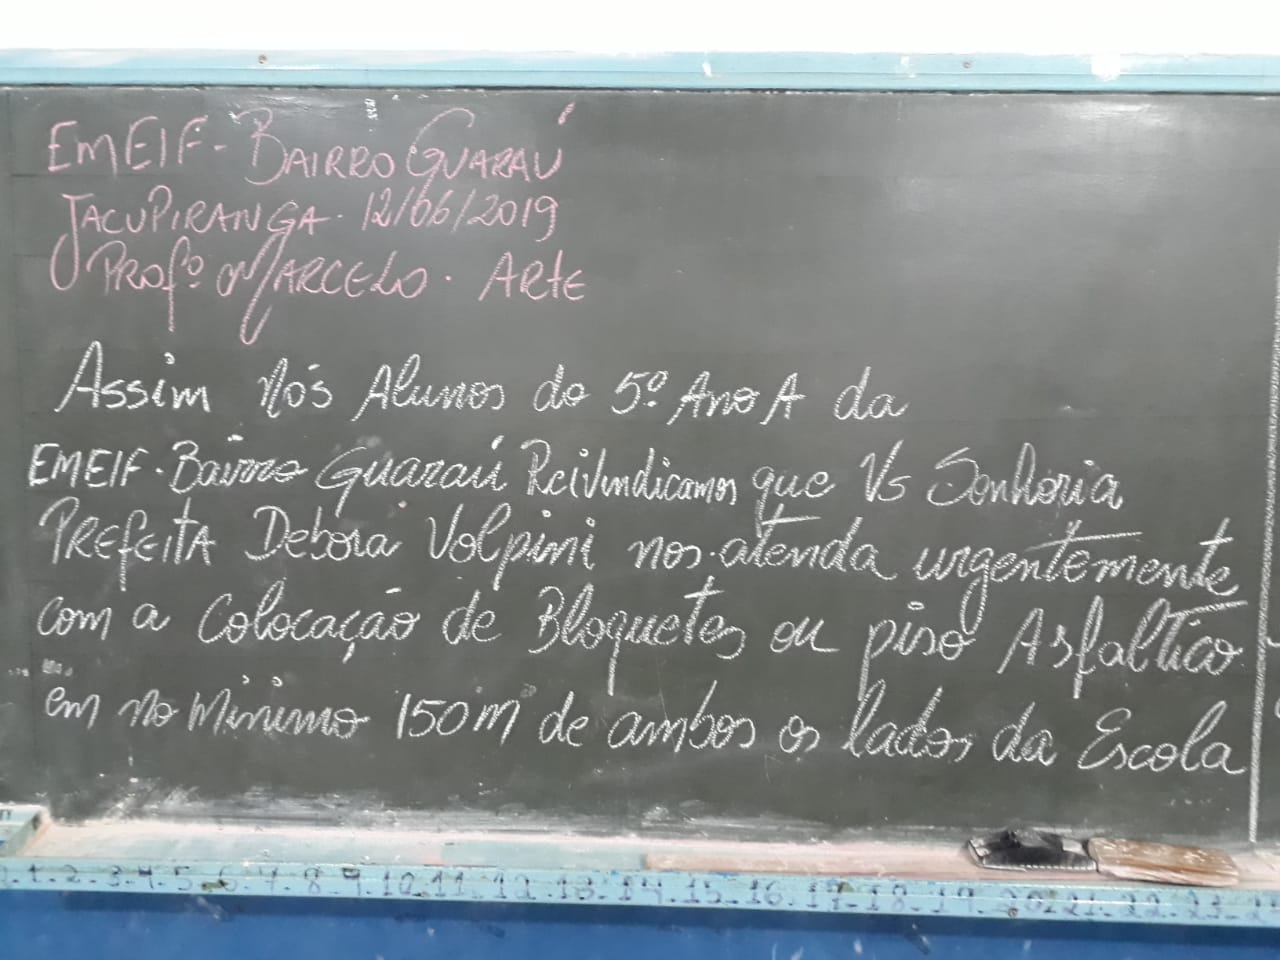 EMEIF - BAIRRO GUARAÚ
JACUPIRANGA. 12/06/2019
PROFº MARCELO. ARTE
Assim Nós Alunos do 5º Ano A da
EMEIF. Bairro Guaraú Reivindicamos que Vs Senhoria
PREFEITA Debora Volpini nos atenda urgentemente
com a Colocação de Bloquetes ou piso Asfaltico
em no Minimo 150m de ambos os lados da Escola
1-2-3-4-5-6-7-8-9-10-11-12-13-14-15-16-17-18-19-20-21-22-23